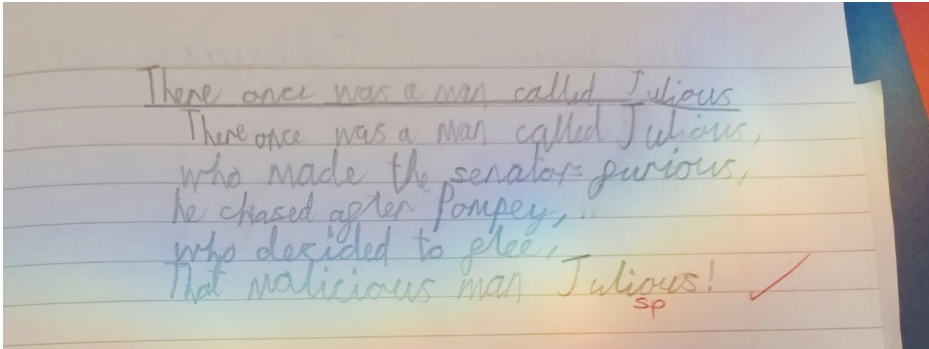 There once was a man called Julious
There once was a man called Julious,
who made the senators furious,
he chased after Pompey,
who decided to flee,
That malicious man Julious!
sp